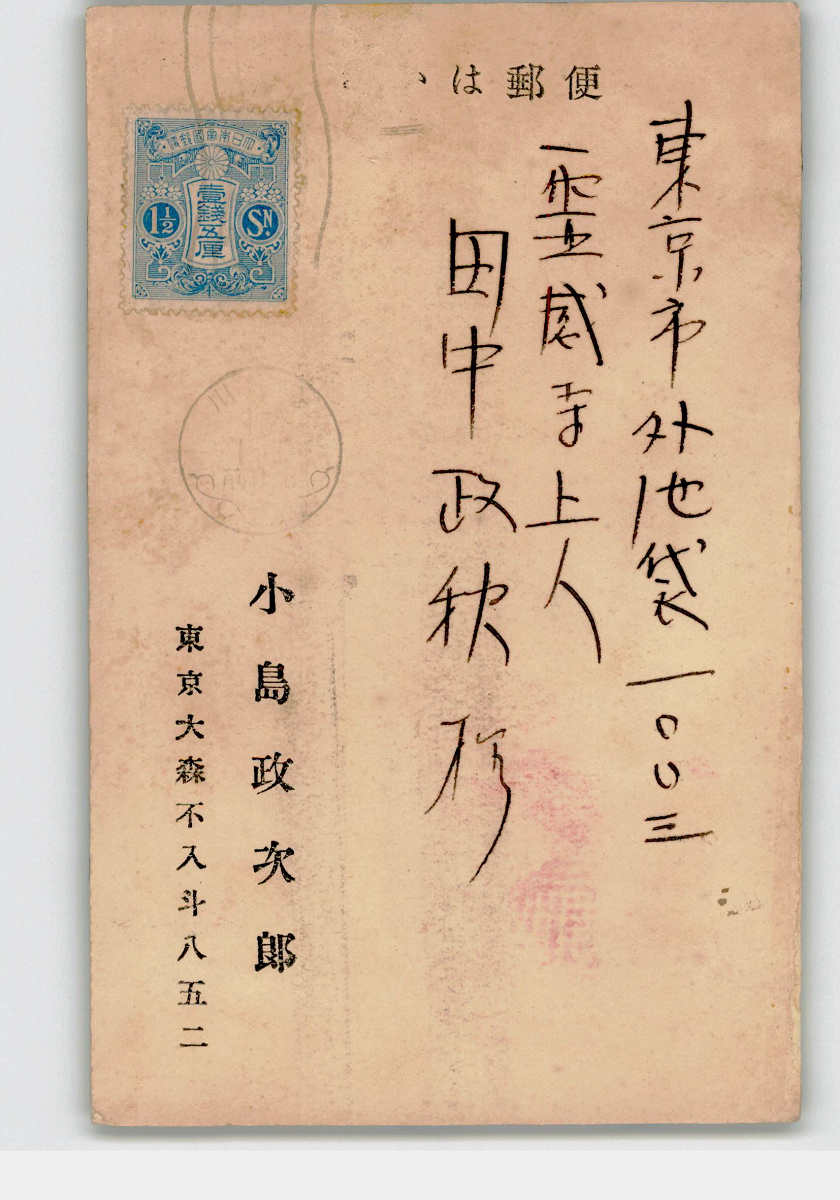 便郵は
東京市外池袋一〇〇三
霊感寺上人
田中政秋様
小島政次郎
東京大森不入斗八五二
大日本帝國郵便
壹錢五厘
1½
Sn.
川